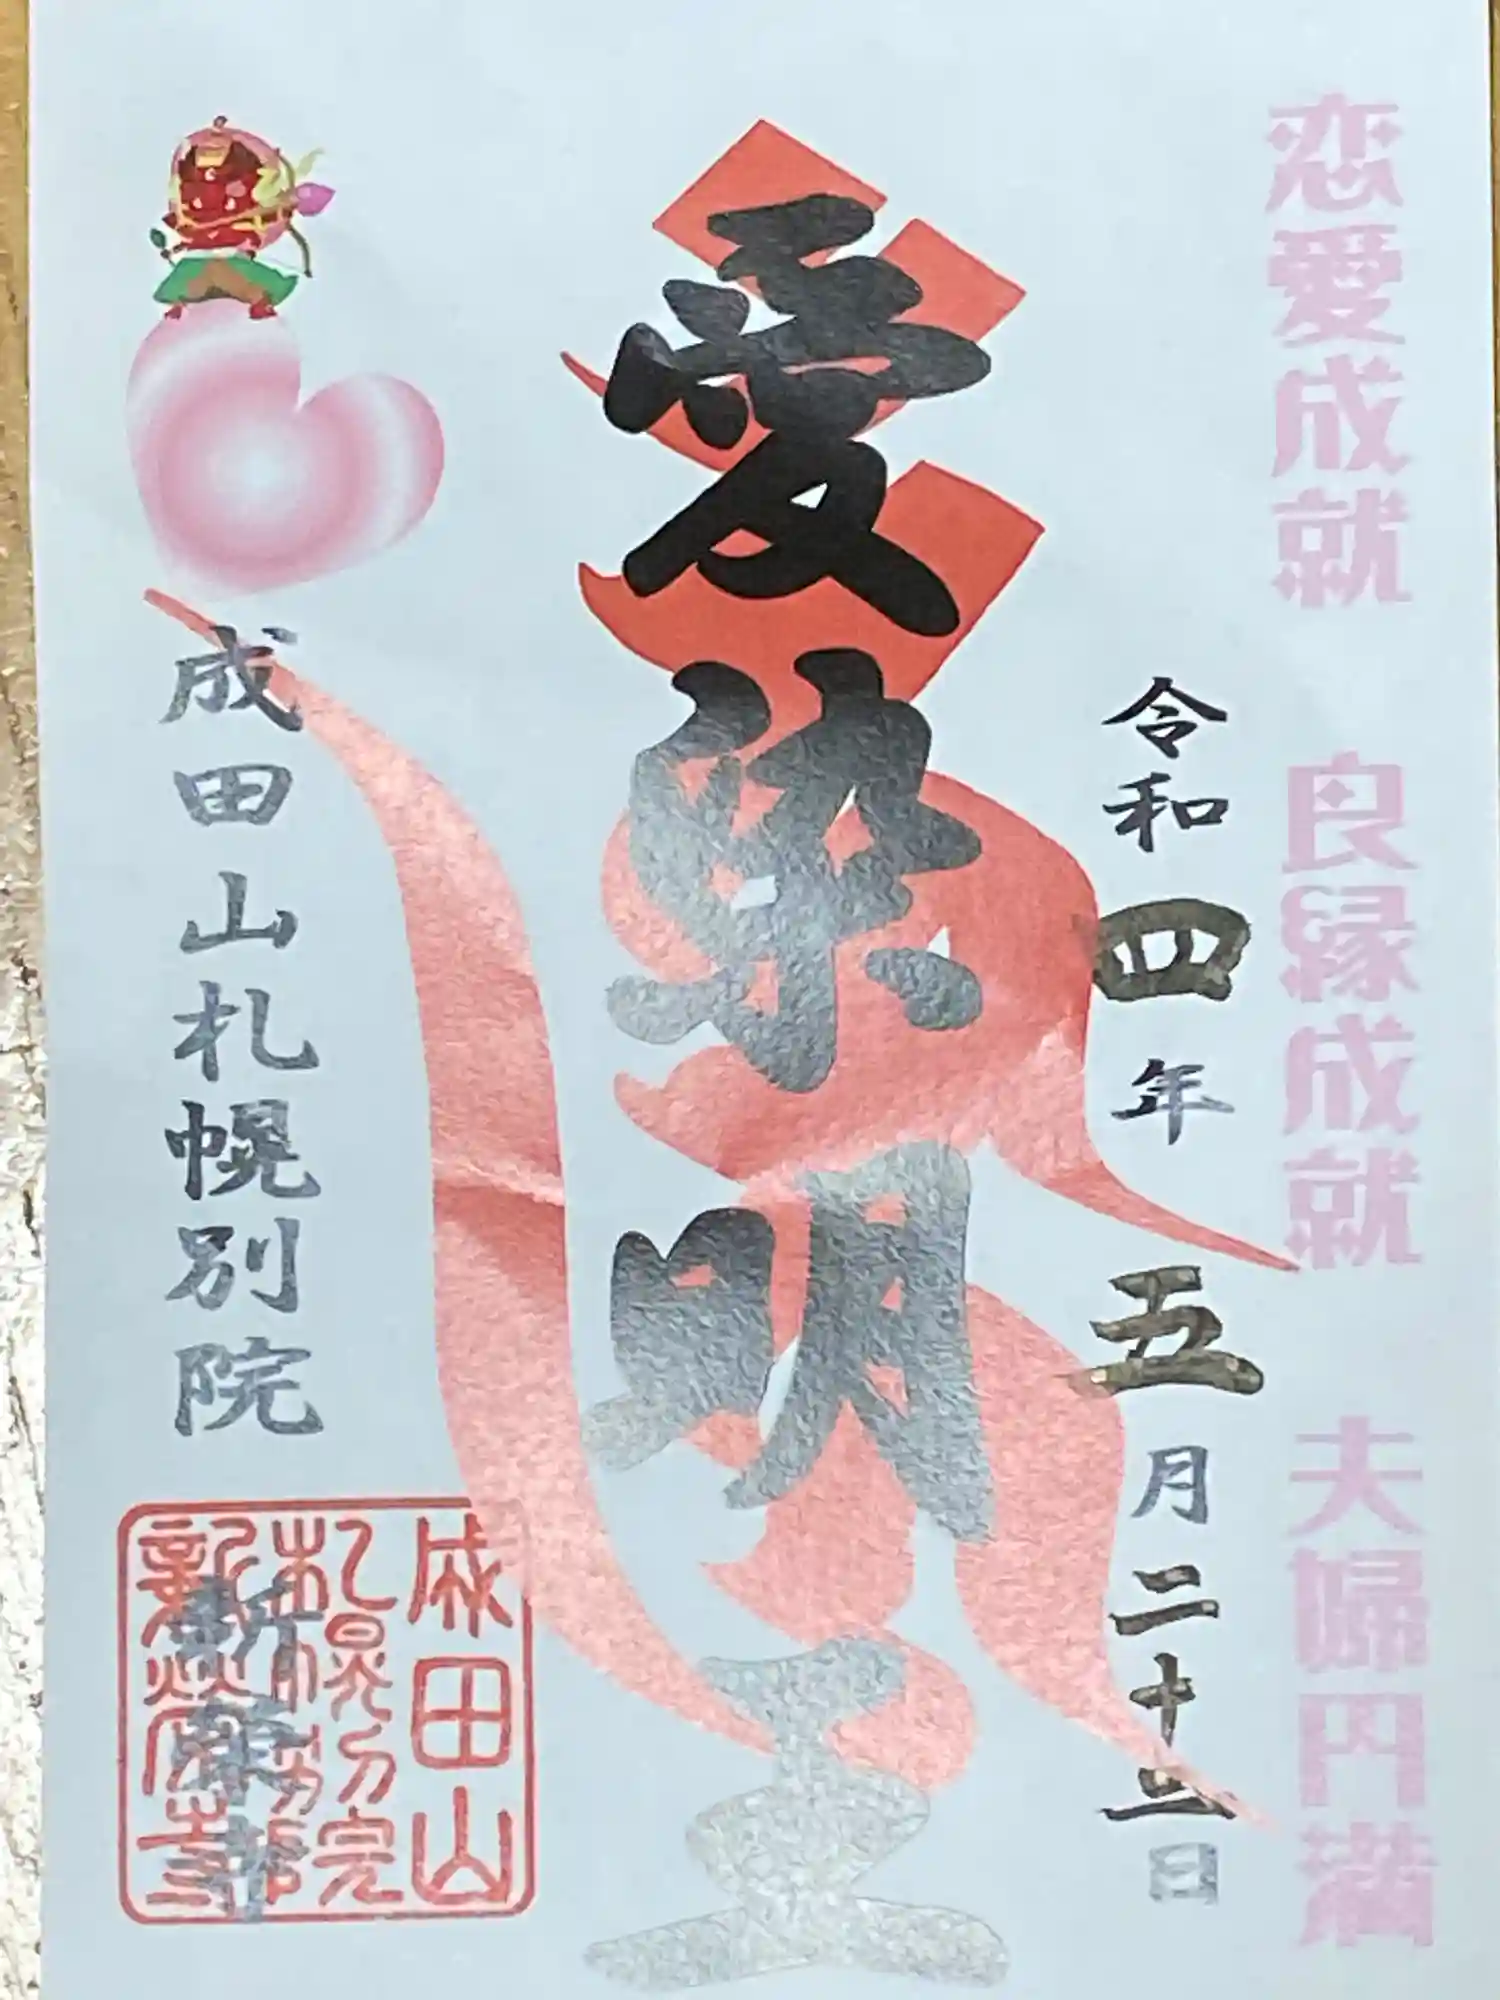 恋愛成就 良縁成就 夫婦円満
令和四年五月二十三日
愛染明王
成田山札幌別院
新栄寺
成田山
札幌別院